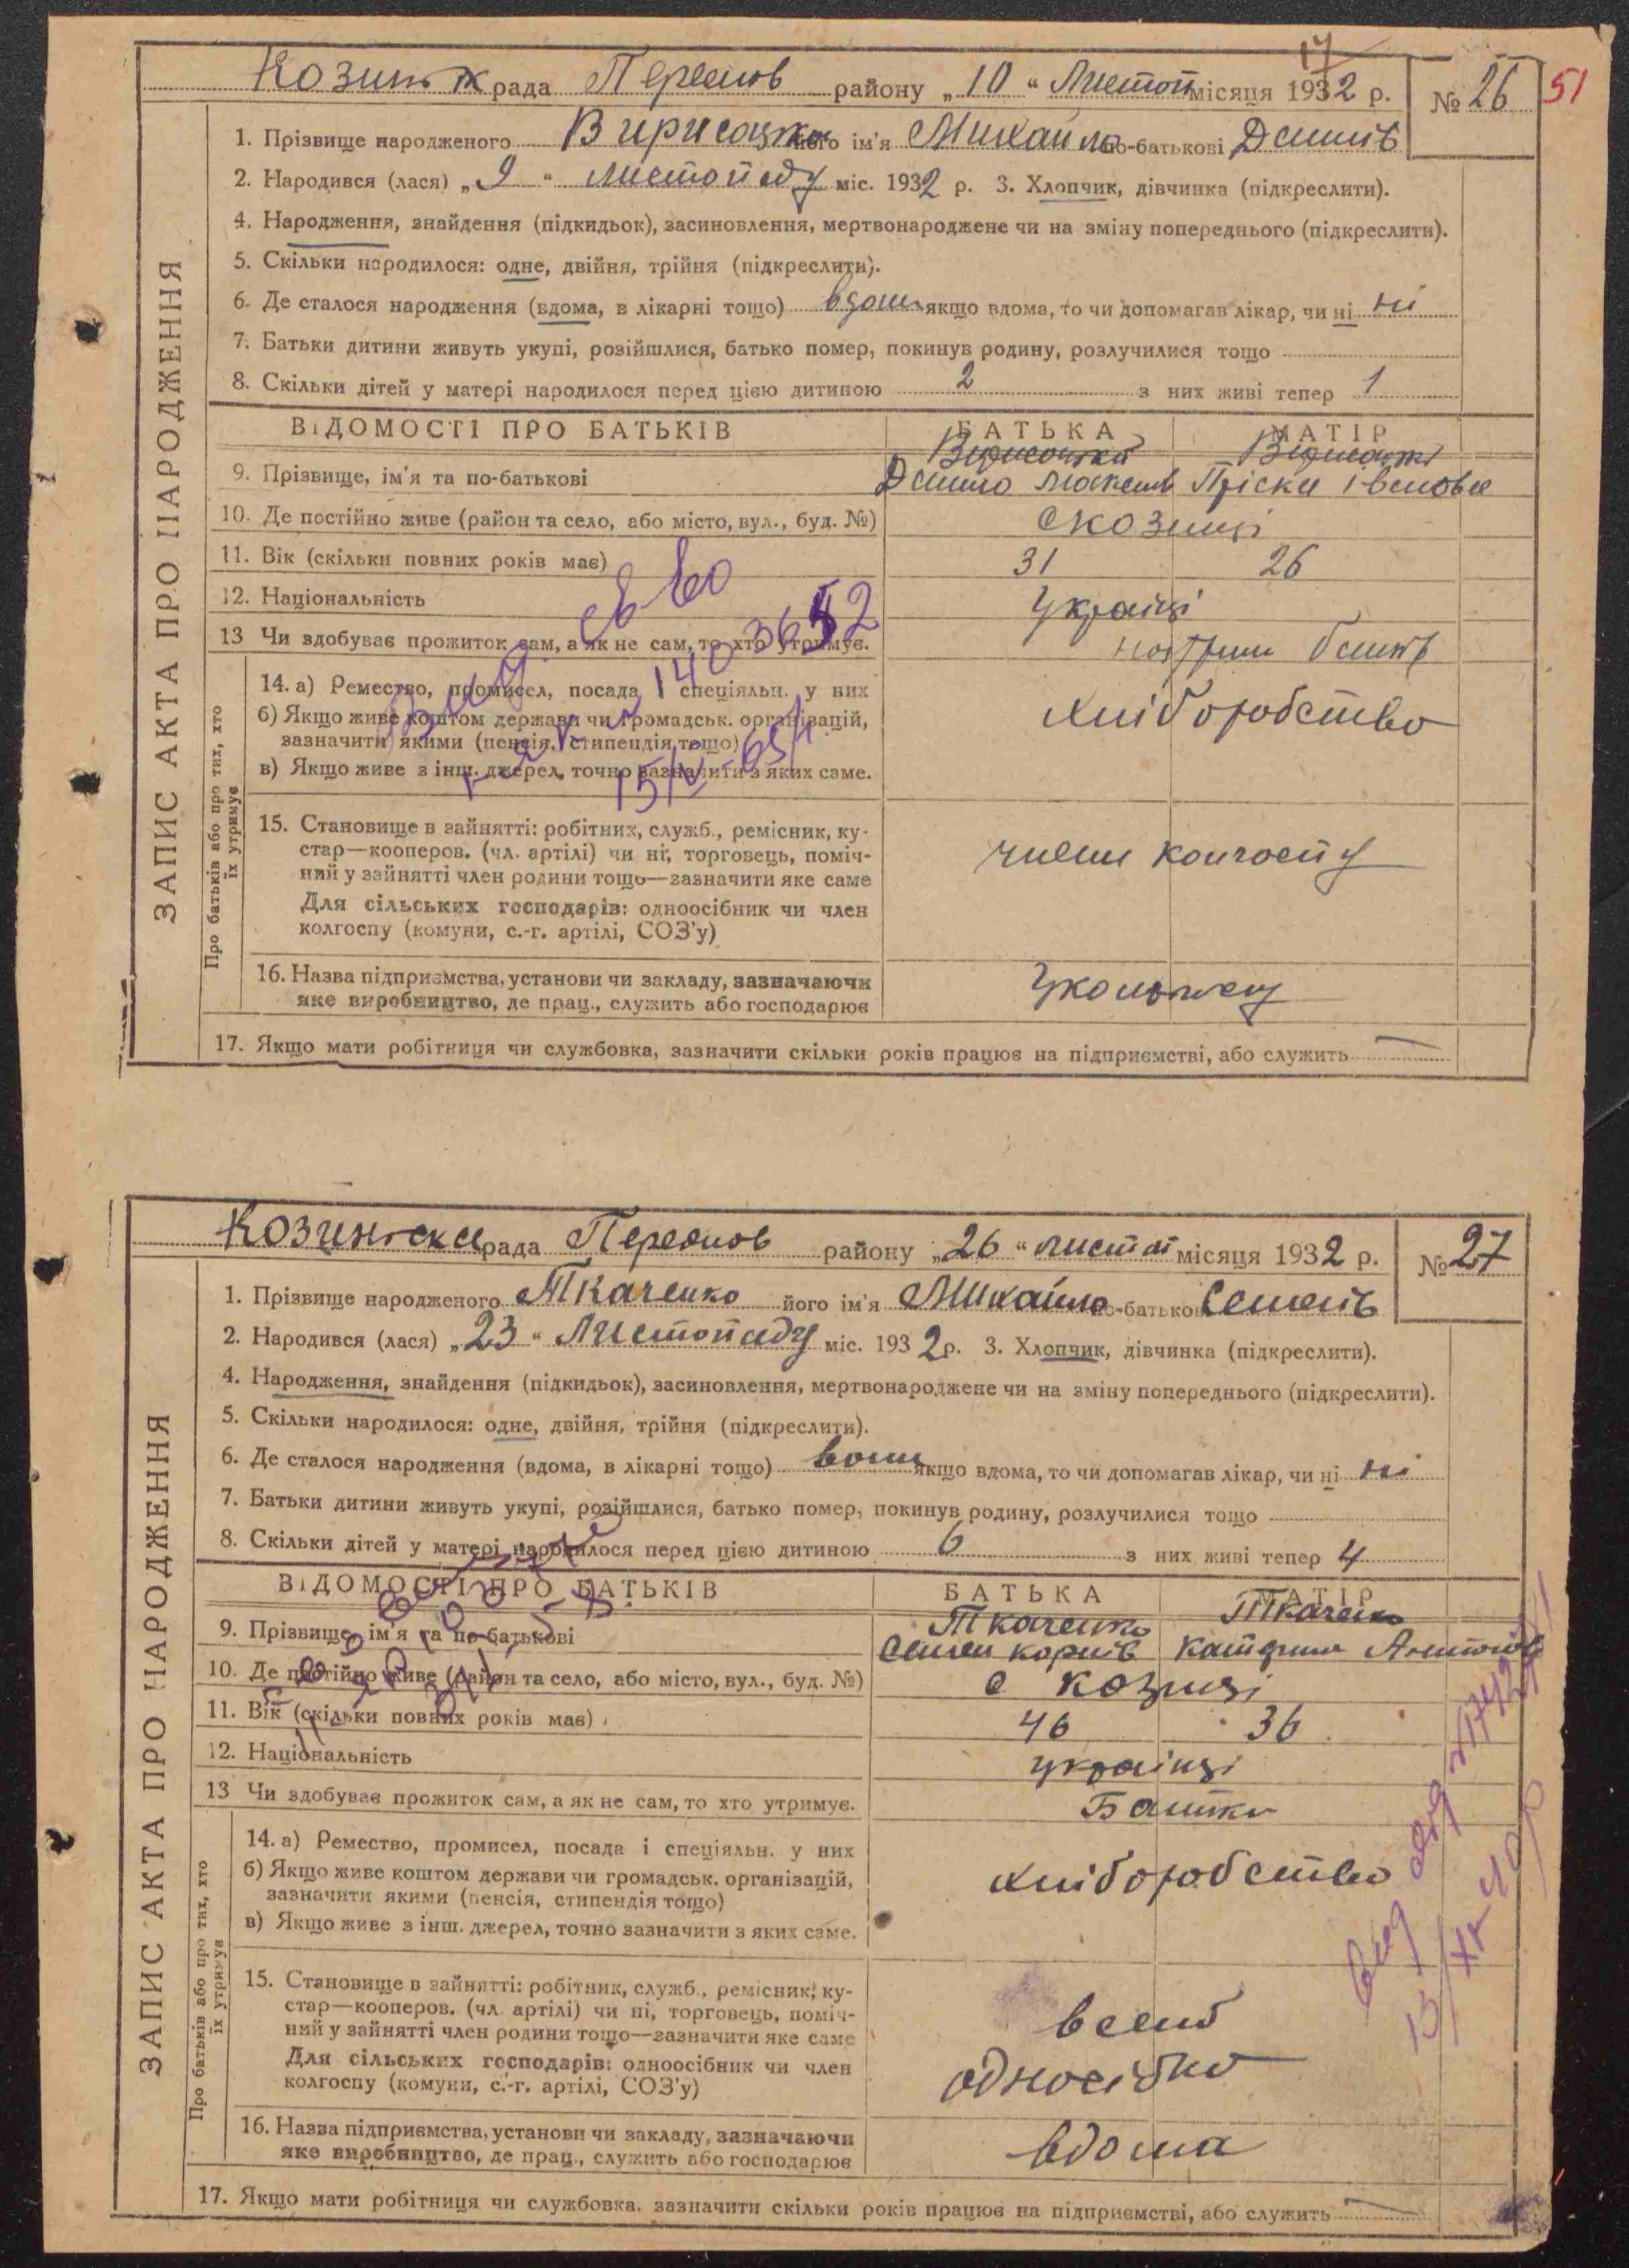 17
51
Козинськ рада Переяслов району „10“ Листоп місяця 1932 р. № 26
1. Прізвище народженого його ім'я Михайло по-батькові Данилів
2. Народився (лася) „9“ листопаду міс. 1932 р. 3. Хлопчик, дівчинка (підкреслити).
4. Народження, знайдення (підкидьок), засиновлення, мертвонароджене чи на зміну попереднього (підкреслити).
5. Скільки народилося: одне, двійня, трійня (підкреслити).
6. Де сталося народження (вдома, в лікарні тощо) вдома якщо вдома, то чи допомагав лікар, чи ні ні
7. Батьки дитини живуть укупі, розійшлися, батько помер, покинув родину, розлучилися тощо
8. Скільки дітей у матері народилося перед цією дитиною 2 з них живі тепер 1
ВІДОМОСТІ ПРО БАТЬКІВ БАТЬКА МАТІР
9. Прізвище, ім'я та по-батькові Данило Максимів Пріська Іванова
10. Де постійно живе (район та село, або місто, вул., буд. №) с Козинці
11. Вік (скільки повних років має) 31 26
12. Національність Україці
13 Чи здобуває прожиток сам, а як не сам, то хто утримує.
14. а) Ремество, промисел, посада і спеціяльн. у них
б) Якщо живе коштом держави чи громадськ. організацій,
зазначити якими (пенсія, стипендія тощо)
в) Якщо живе з інш. джерел, точно зазначити з яких саме.
хліборобство
15. Становище в зайнятті: робітник, служб., ремісник, ку-
стар—кооперов. (чл. артілі) чи ні, торговець, поміч-
ний у зайнятті член родини тощо—зазначити яке саме
Для сільських господарів: одноосібник чи член
колгоспу (комуни, с.-г. артілі, СОЗ'у)
члени колгоспу
16. Назва підприємства, установи чи закладу, зазначаючи
яке виробництво, де прац., служить або господарює
У колгоспу
17. Якщо мати робітниця чи службовка, зазначити скільки років працює на підприємстві, або служить —
ЗАПИС АКТА ПРО НАРОДЖЕННЯ
Про батьків або про тих, хто
їх утримує
Козинська рада Переяслов району „26“ листоп місяця 1932 р. № 27
1. Прізвище народженого Ткаченко його ім'я Михайло по-батькові Семенів
2. Народився (лася) „23“ Листопаду міс. 1932 р. 3. Хлопчик, дівчинка (підкреслити).
4. Народження, знайдення (підкидьок), засиновлення, мертвонароджене чи на зміну попереднього (підкреслити).
5. Скільки народилося: одне, двійня, трійня (підкреслити).
6. Де сталося народження (вдома, в лікарні тощо) якщо вдома, то чи допомагав лікар, чи ні ні
7. Батьки дитини живуть укупі, розійшлися, батько помер, покинув родину, розлучилися тощо
8. Скільки дітей у матері народилося перед цією дитиною 6 з них живі тепер 4
ВІДОМОСТІ ПРО БАТЬКІВ БАТЬКА МАТІР
Ткаченко Ткаченко
9. Прізвище, ім'я та по-батькові Семен Корнів Катерина Антонов
10. Де постійно живе (район та село, або місто, вул., буд. №) с Козинці
11. Вік (скільки повних років має) 46 36
12. Національність українці
13 Чи здобуває прожиток сам, а як не сам, то хто утримує. Батьки
14. а) Ремество, промисел, посада і спеціяльн. у них
б) Якщо живе коштом держави чи громадськ. організацій,
зазначити якими (пенсія, стипендія тощо)
в) Якщо живе з інш. джерел, точно зазначити з яких саме.
хліборобство
15. Становище в зайнятті: робітник, служб., ремісник, ку-
стар—кооперов. (чл. артілі) чи ні, торговець, поміч-
ний у зайнятті член родини тощо—зазначити яке саме
Для сільських господарів: одноосібник чи член
колгоспу (комуни, с.-г. артілі, СОЗ'у)
16. Назва підприємства, установи чи закладу, зазначаючи
яке виробництво, де прац., служить або господарює
вдома
17. Якщо мати робітниця чи службовка, зазначити скільки років працює на підприємстві, або служить —
ЗАПИС АКТА ПРО НАРОДЖЕННЯ
Про батьків або про тих, хто
їх утримує